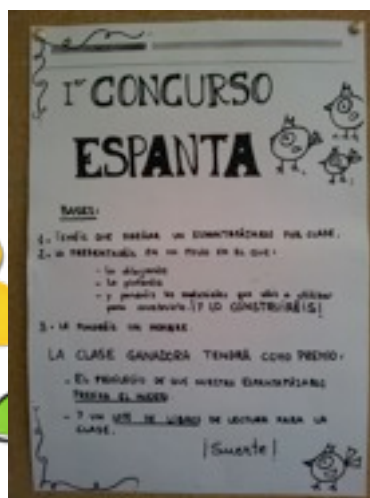 1er CONCURSO
ESPANTA
BASES:
1.- TENÉIS QUE DISEÑAR UN ESPANTAPÁJAROS POR CLASE.
2.- LO PRESENTARÉIS EN UN FOLIO EN EL QUE:
- lo dibujaréis
- lo pintaréis
- y pondréis los materiales que vais a utilizar
para construirlo. ¡Y LO CONSTRUIRÉIS!
3.- LE PONDRÉIS UN NOMBRE.
LA CLASE GANADORA TENDRÁ COMO PREMIO:
- EL PRIVILEGIO DE QUE NUESTRO ESPANTAPÁJAROS
PRESIDA EL HUERTO
- Y UN LOTE DE LIBROS DE LECTURA PARA LA
CLASE.
¡Suerte!